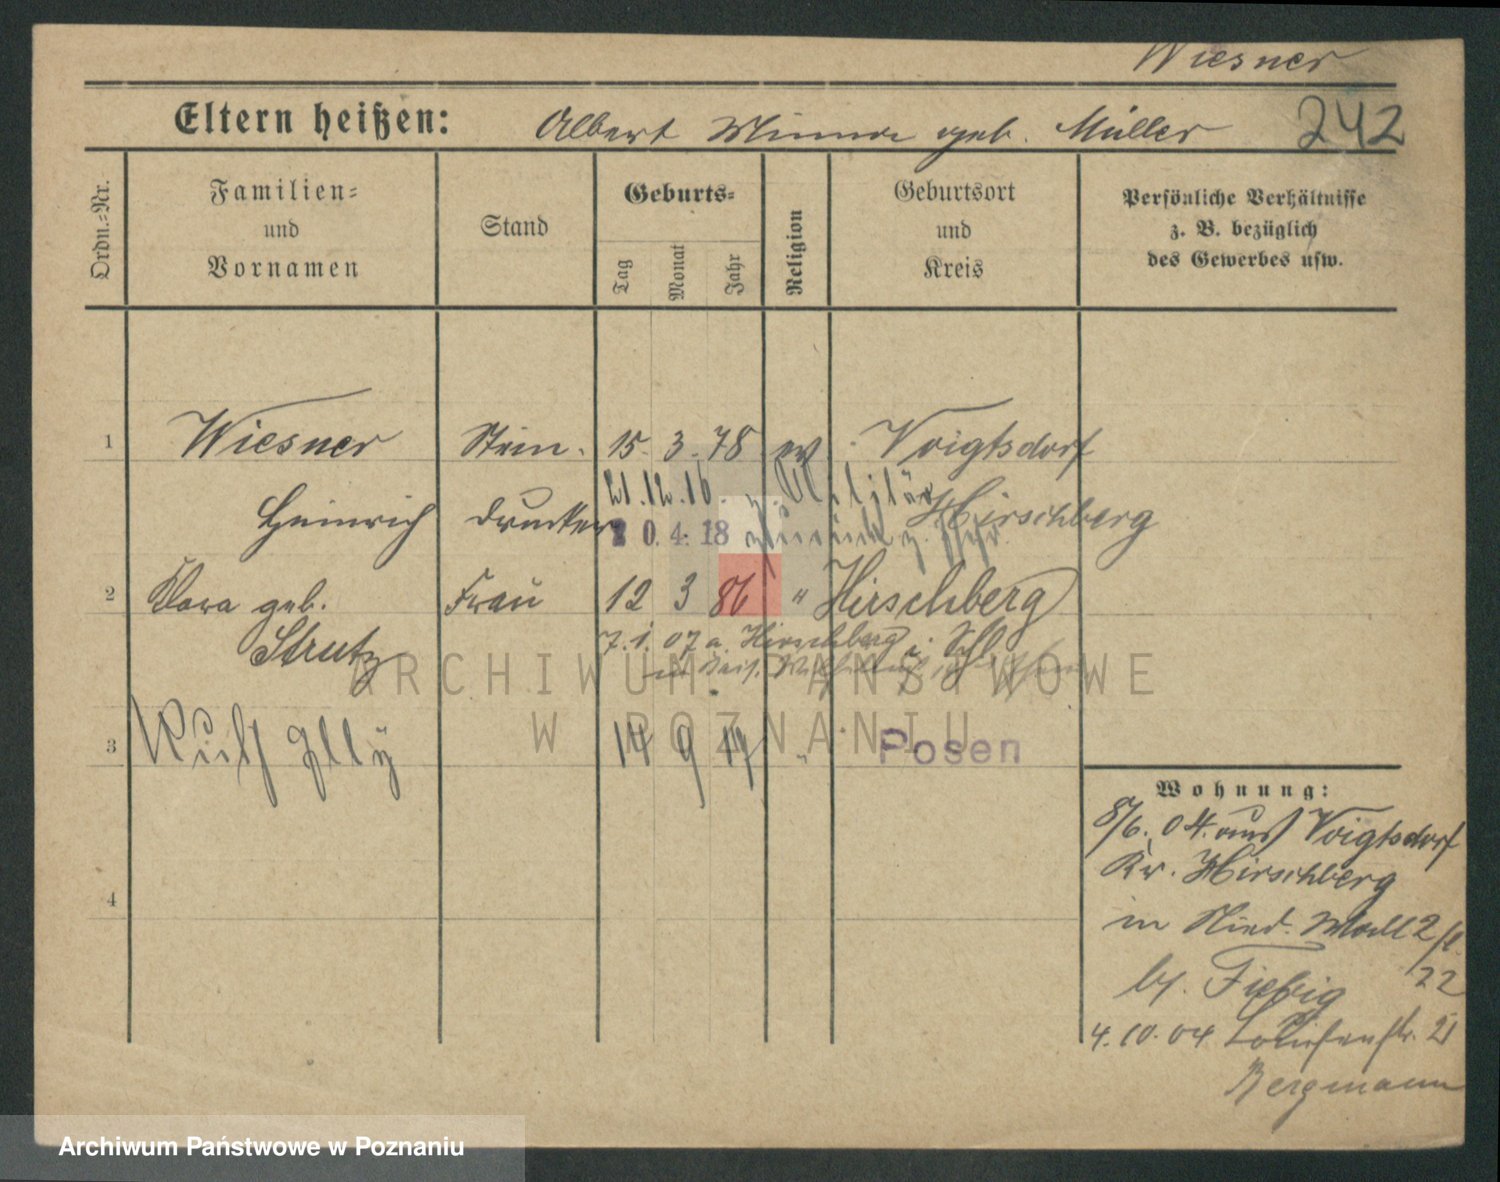 Wiesner
Eltern heißen: Albert Minna geb. Müller 242
Ordn.=Nr.
Familien=
und
Vornamen
Stand
Geburts=
Tag
Monat
Jahr
Religion
Geburtsort
und
Kreis
Persönliche Verhältnisse
z. B. bezüglich
des Gewerbes usw.
1 Wiesner Stein. 15. 3. 78 ev. Voigtsdorf
21.12.16. z. Militär
Heinrich drucker Hirschberg
20.4.18 zurück
2 Klara geb. Frau 12 3 86 " Hirschberg
Strutz
7.1.07 a. Hirschberg i. Schl.
3 Ruth Illy 14 9 14 " Posen
4
Wohnung:
8/6. 04. aus Voigtsdorf
Kr. Hirschberg
in Nied. Wall 2/I.
by. Fiebig 22
4.10.04 Louisenstr. 21
Bergmann
ARCHIWUM PAŃSTWOWE
W POZNANIU
Archiwum Państwowe w Poznaniu